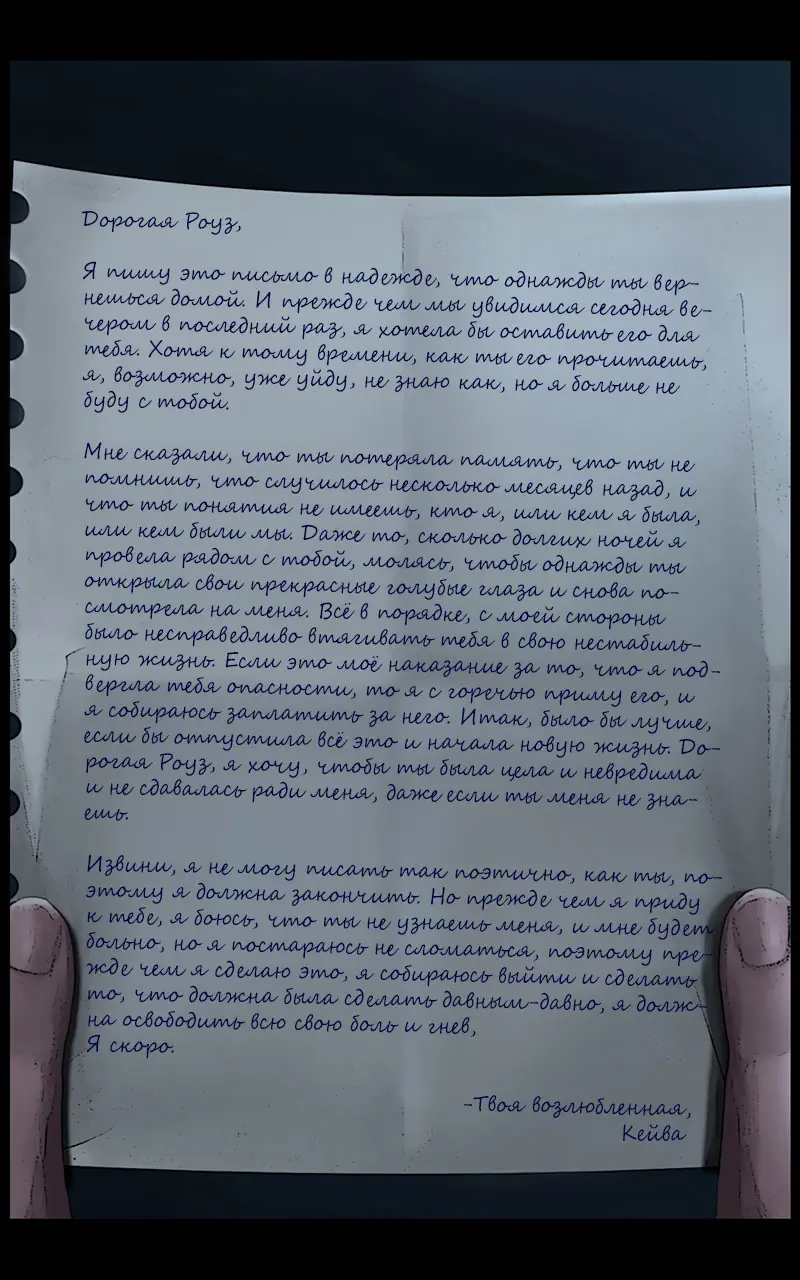 Дорогая Роуз,
Я пишу это письмо в надежде, что однажды ты вер-
нешься домой. И прежде чем мы увидимся сегодня ве-
чером в последний раз, я хотела бы оставить его для
тебя. Хотя к тому времени, как ты его прочитаешь,
я, возможно, уже уйду, не знаю как, но я больше не
буду с тобой.
Мне сказали, что ты потеряла память, что ты не
помнишь, что случилось несколько месяцев назад, и
что ты понятия не имеешь, кто я, или кем я была,
или кем были мы. Даже то, сколько долгих ночей я
провела рядом с тобой, молясь, чтобы однажды ты
открыла свои прекрасные голубые глаза и снова по-
смотрела на меня. Всё в порядке, с моей стороны
было несправедливо втягивать тебя в свою нестабиль-
ную жизнь. Если это моё наказание за то, что я под-
вергла тебя опасности, то я с горечью приму его, и
я собираюсь заплатить за него. Итак, было бы лучше,
если бы отпустила всё это и начала новую жизнь. До-
рогая Роуз, я хочу, чтобы ты была цела и невредима
и не сдавалась ради меня, даже если ты меня не зна-
ешь.
Извини, я не могу писать так поэтично, как ты, по-
этому я должна закончить. Но прежде чем я приду
к тебе, я боюсь, что ты не узнаешь меня, и мне будет
больно, но я постараюсь не сломаться, поэтому пре-
жде чем я сделаю это, я собираюсь выйти и сделать
то, что должна была сделать давным-давно, я долж-
на освободить всю свою боль и гнев,
Я скоро.
-Твоя возлюбленная,
Кейва